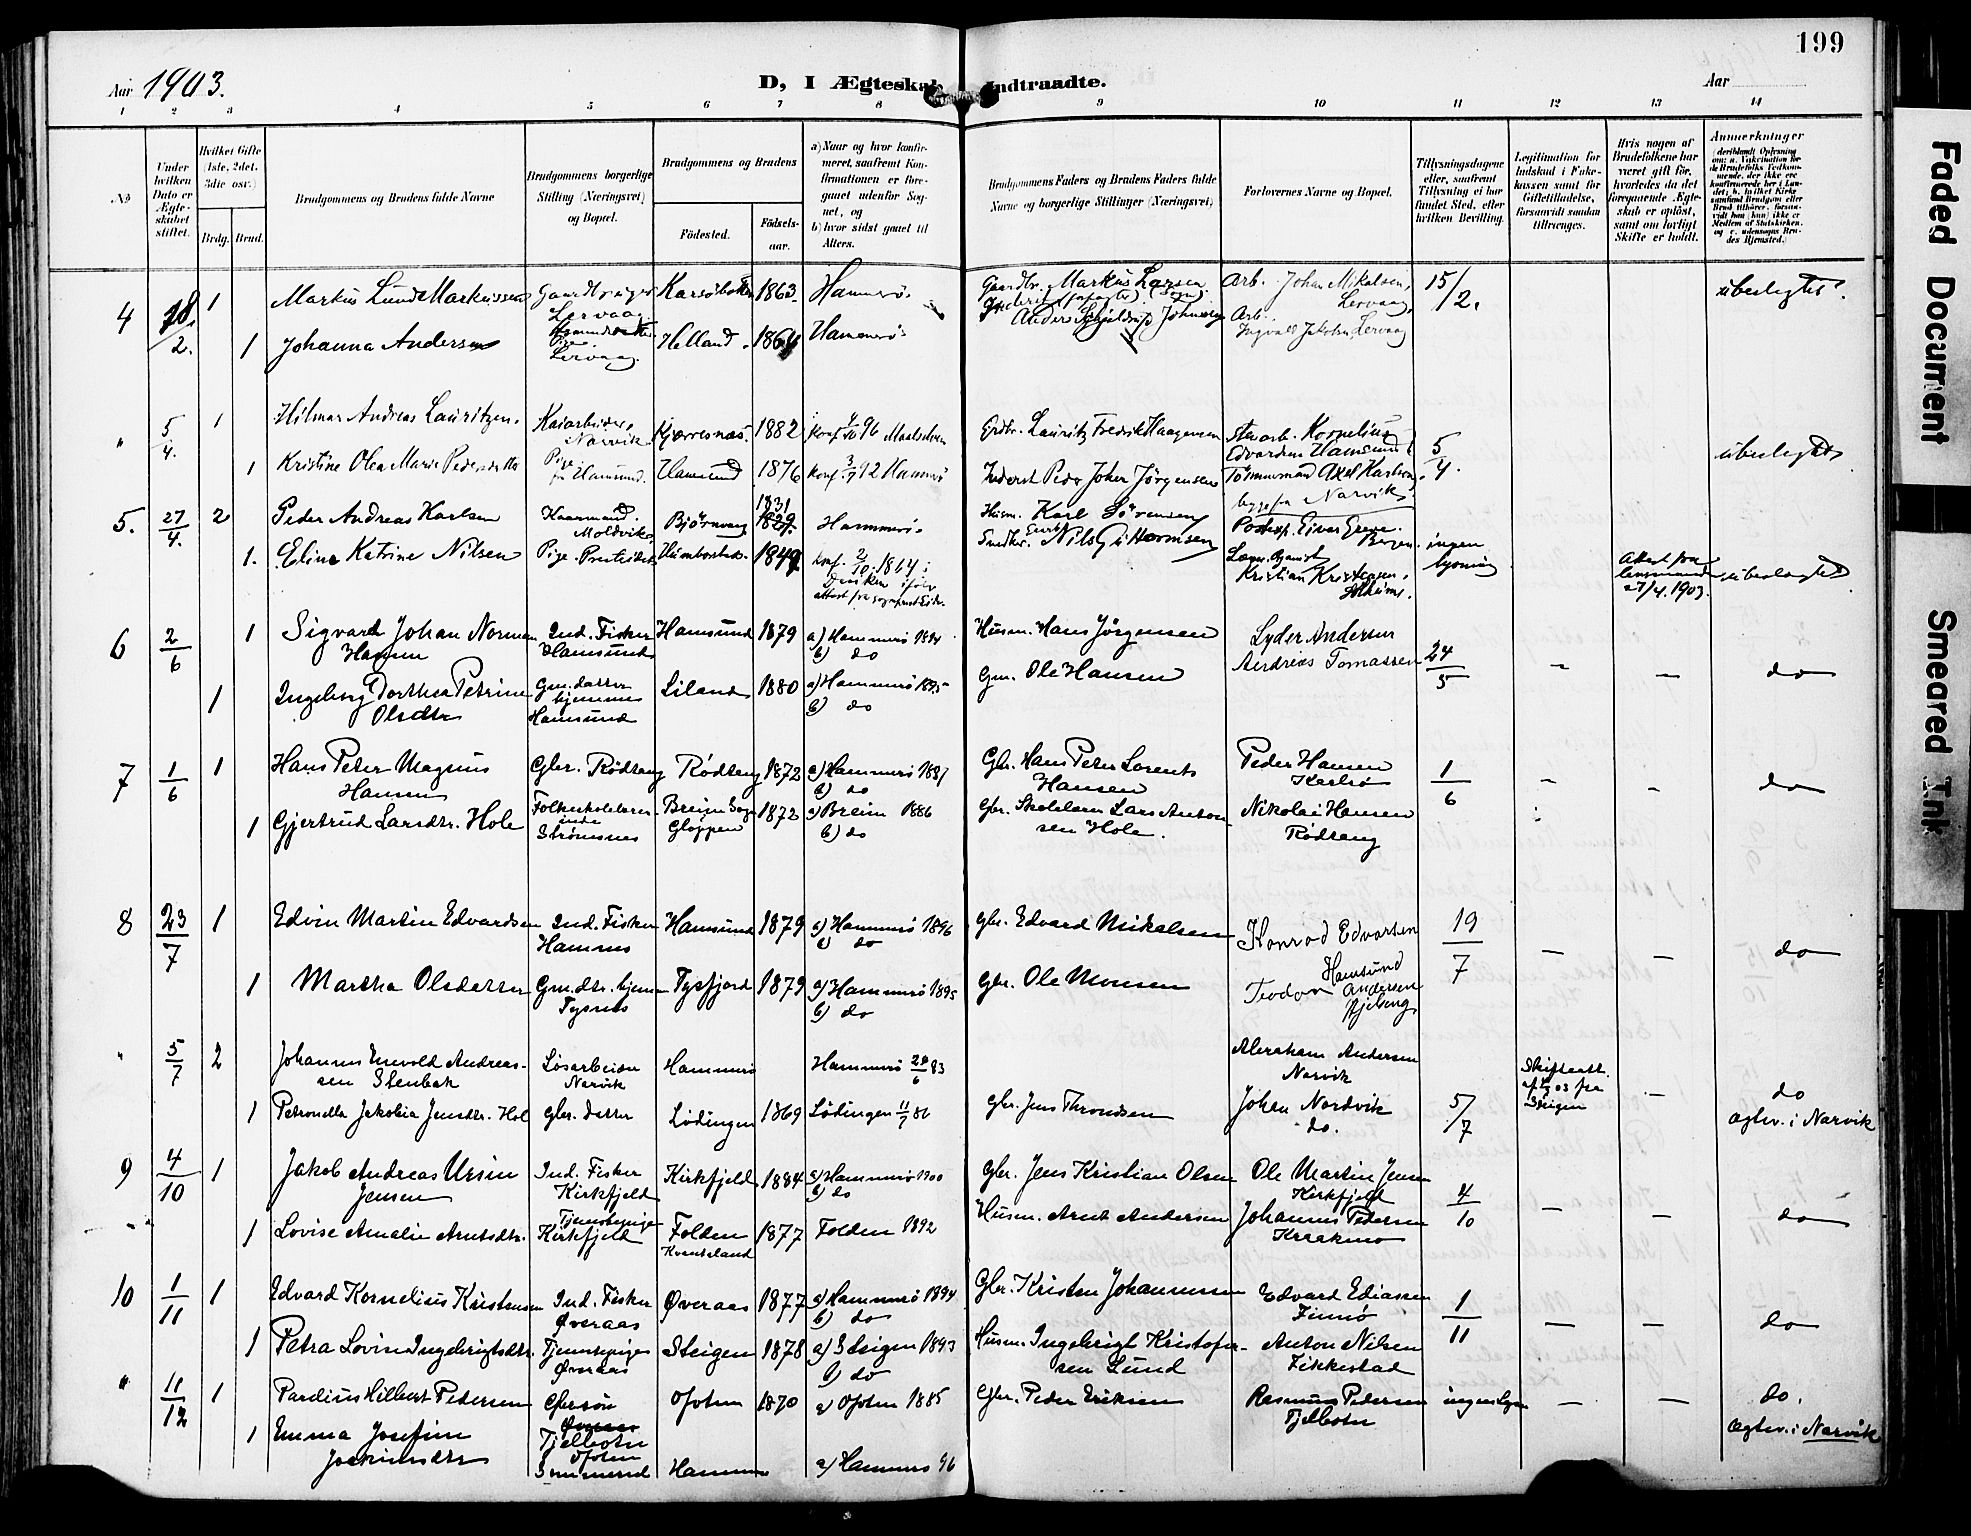 199
Aar 1903.
D, I Ægteskab Indtraadte.
Aar
1 2 3 4 5 6 7 8 9 10 11 12 13 14
No
Under hvilken Dato er Ægteskabet stiftet.
Hvilket Gifte (1ste, 2det, 3die osv.)
Brdg. Brud.
Brudgommens og Brudens fulde Navne
Brudgommens borgerlige Stilling (Næringsvei) og Bopæl.
Brudgommens og Brudens
Fødested.
Fødselsaar.
a) Naar og hvor konfirmeret, saafremt Konfirmationen er foregaaet udenfor Sognet, og
b) hvor sidst gaaet til Alters.
Brudgommens Faders og Brudens Faders fulde Navne og borgerlige Stillinger (Næringsvei)
Forlovernes Navne og Bopæl.
Tillysningsdagene eller, saafremt Tillysning ei har fundet Sted, efter hvilken Bevilling.
Legitimation for Indskud i Enkekassen samt for Giftetilladelse, forsaavidt saadan tiltrænges.
Hvis nogen af Brudefolkene har været gift før, hvorledes da det foregaaende Ægteskab er opløst, samt om lovligt Skifte er holdt.
Anmerkninger
4 18/2. 1 Markus Lund Markussen Gaardbruger Lervaag Karsöbotten 1863. Hammerö. Gaardbr. Markus Larsen Arb. Johan Mikalsen, Lervaag 15/2. ubeslegtet.
1 Johanna Andersen Pige Lervaag Helland. 1864 Hammerö Anders Schjeldrup Johnsen Arb. Ingvald Jakobsen, Lervaag
" 5/4. 1 Hilmar Andreas Lauritzen. Kaiarbeider, Narvik Kjærresnæs. 1882 Konf 4/10 96 Maalselven Grdbr. Lauritz Fredrik Haagensen Stenarb. Kornelius Edvardsen Hamsund 5/4. ubeslegtet
1 Kristine Olea Marie Pedersdatter Pige fra Hamsund. Hamsund 1876 Konf 3/7 92 Hammerö Inderst Peder Johan Jörgensen Tömmermand Axel Karlson. begge fra Narvik
5. 27/4. 2 Peder Andreas Karlsen Kaarmand. Moldvik Björnvaag 1831 1829. Hammerö. Husm. Karl Sörensen Postexp. Einar Greve. Bergen. ingen lysning
1. Eline Katrine Nilsen Pige. Prestesletten 1849 Konf. 2/10 1864 i attest fra sogneprest Nils Kristian Kristensen. Attest fra lensmanden 27/4. 1903. ubeslegtet
6 2/6 1 Sigvard Johan Norman Hansen Ind. Fisker Hamsund Hamsund 1879 a) Hammerö 1894 b) do Husm. Hans Jørgensen Lyder Andersen 24/5 – – do
1 Ingeborg Dorthea Petrine Olsdtr Gm. datter hjemme Hamsund Liland 1880 a) Hammerö 1895 b) do Gm. Ole Hansen Andreas Tomassen
7 1/6 1 Hans Peter Magnus Hansen Gbr. Rødtang Rødtang 1872 a) Hammerö 1887 b) do Gbr. Hans Peter Lorents Hansen Peder Hansen Karlsö 1/6 – – do
1 Gjertrud Larsdtr. Hole Folkehøilærerinde Strømsnes Breim Sogn Gloppen 1872 a) Breim 1886 b) do Gbr. Skolelærer Lars Antonsen Hole. Nikolai Hansen Rødtang
8 23/7 1 Edvin Martin Edvardsen Ind. Fisker Hamnes Hamsund 1879 a) Hammerö 1896 b) do Gbr. Edvard Mikalsen Konrad Edvartsen Hamsund 19/7 – – do
1 Martha Olsdatter Gm.dtr. hjemme Tysnes Tysfjord 1879 a) Hammerö 1895 b) do Gbr. Ole Monsen Teodor Andersen
" 5/7 2 Johannes Enevold Andreassen Stenbak Løsarbeider Narvik Hammerö Hammerö 24/6 83 Abraham Andersen Narvik 5/7 Skifteatt. fra Steigen – do
1 Petronella Jakobia Jensdtr. Hol Gbr. datter Lødingen 1869 Lödingen 11/7 86 Gbr. Jens Throndsen Johan Nordvik do. Ægtev. i Narvik
9 4/10 1 Jakob Andreas Ursin Jensen Ind. Fisker Kirkfjeld Kirkfjeld 1884 a) Hammerö 1900 b) do Gbr. Jens Kristian Olsen Ole Martin Jensen Kirkfjeld 4/10 – – do
1 Lovise Amalie Arntsdtr. Tjenestepige Kirkfjeld Folden 1877 Folden 1892 Husm. Arnt Andersen Johannes Pedersen Kraakmo
10 1/11 1 Edvard Kornelius Kristensen Ind. Fisker Øveraas Øveraas 1877 a) Hammerö 1894 b) do Gbr. Kristen Johannessen Edvard Ediassen Finnö 1/11 – – do
1 Petra Lovise Ingebrigtsdtr. Tjenestepige Øveraas Steigen 1878 a) Steigen 1893 b) do Husm. Ingebrigt Kristofersen Lund Anton Nilsen Zikkestad
" 11/12 1 Pardius Hilbert Pedersen Gbrsøn Tjelbotn Ofoten Ofoten 1870 a) Ofoten 1885 Gbr. Peder Eriksen Rasmus Pedersen Tjelbotn – – do.
1 Emma Josefine Joakimsdtr Hammerö a) Hammerö 96 Ægtev. i Narvik
Faded Document
Smeared Ink